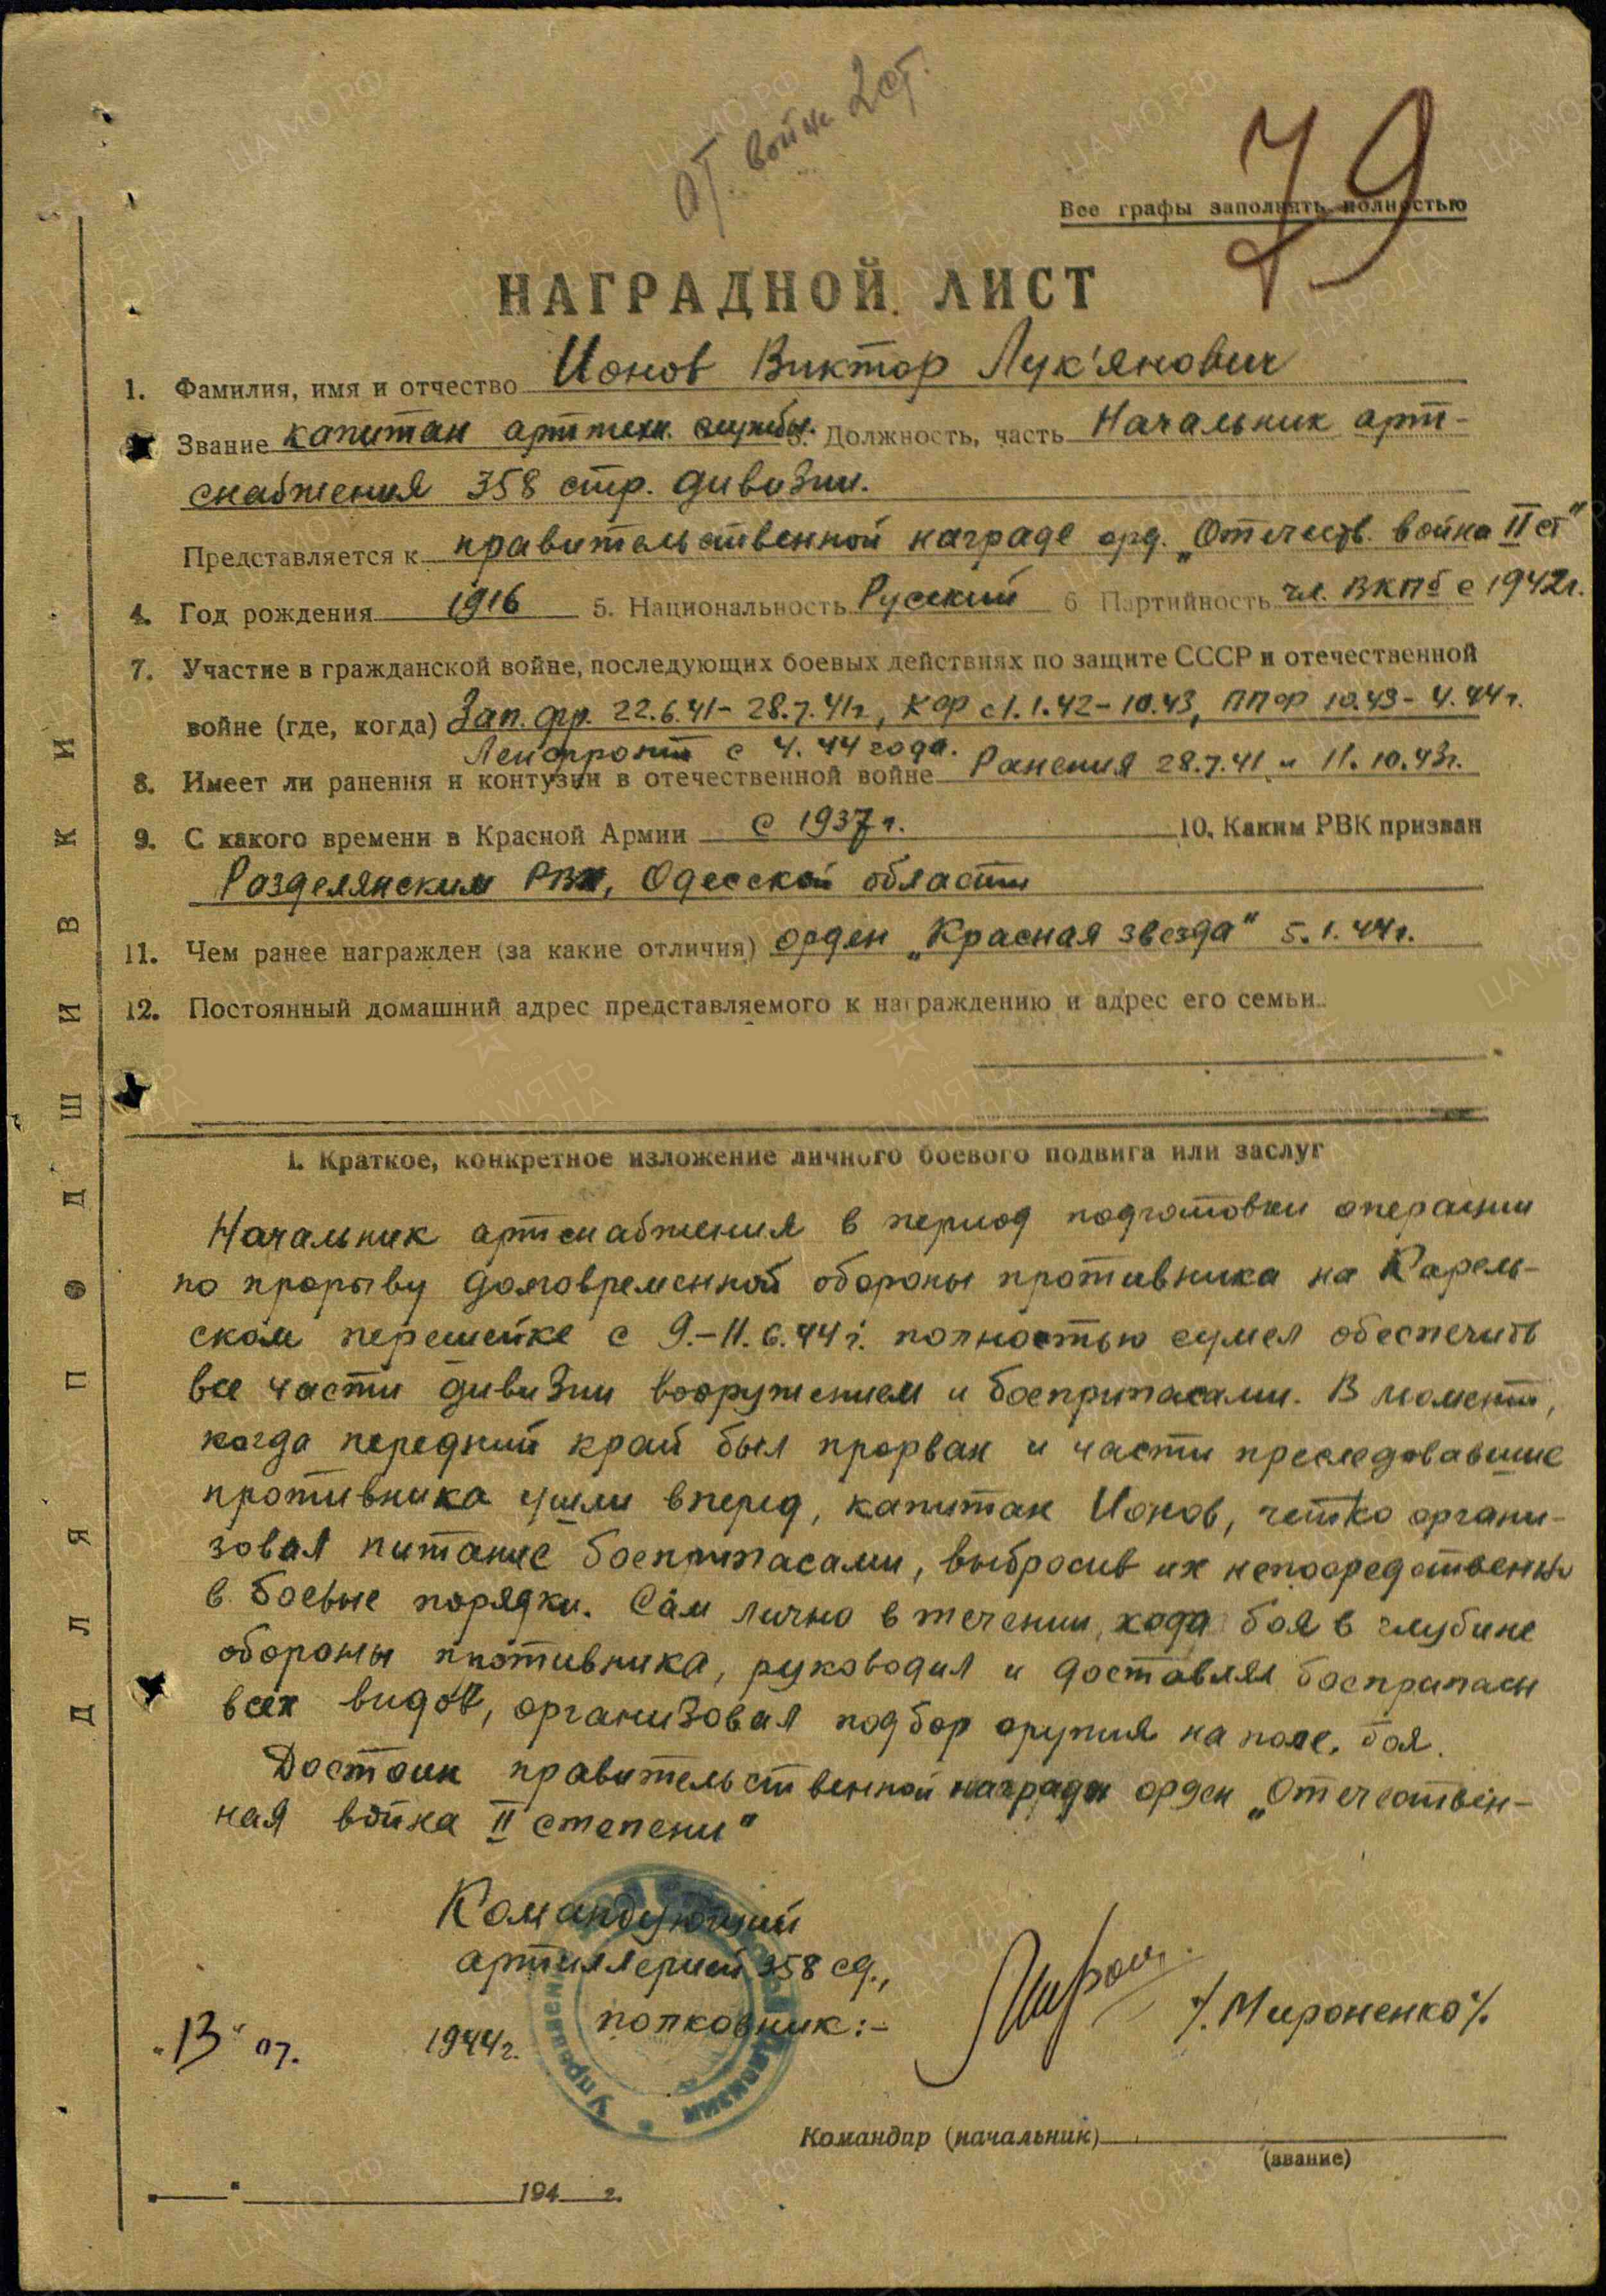 От. войн. 2 ст.
79
Все графы заполнять полностью
НАГРАДНОЙ ЛИСТ
1. Фамилия, имя и отчество Ионов Виктор Лук'янович
Звание капитан арттехн. службы. 3. Должность, часть Начальник арт-
снабжения 358 стр. дивизии.
Представляется к правительственной награде орд. „Отечеств. война II ст"
4. Год рождения 1916 5. Национальность Русский 6 Партийность чл. ВКПб с 1942г.
7. Участие в гражданской войне, последующих боевых действиях по защите СССР и отечественной
войне (где, когда) Зап. фр. 22.6.41-28.7.41г, КФ с 1.1.42-10.43, ППФ 10.43-4.44г.
Ленфронт с 4.44 года.
8. Имеет ли ранения и контузии в отечественной войне Ранения 28.7.41 и 11.10.43г.
9. С какого времени в Красной Армии с 1937г. 10. Каким РВК призван
Разделянским РВК, Одесской области
11. Чем ранее награжден (за какие отличия) орден „Красная звезда" 5.1.44г.
12. Постоянный домашний адрес представляемого к награждению и адрес его семьи
I. Краткое, конкретное изложение личного боевого подвига или заслуг
Начальник артснабжения в период подготовки операции
по прорыву долговременной обороны противника на Карель-
ском перешейке с 9.-11.6.44г. полностью сумел обеспечить
все части дивизии вооружением и боеприпасами. В момент,
когда передний край был прорван и части преследовавшие
противника ушли вперед, капитан Ионов, четко органи-
зовал питание боеприпасами, выбросив их непосредственно
в боевые порядки. Сам лично в течении хода боя в глубине
обороны противника, руководил и доставлял боеприпасы
всех видов, организовал подбор оружия на поле боя.
Достоин правительственной награды орден „Отечествен-
ная война II степени"
Командующий
артиллерией 358 сд.,
полковник:-
/.Мироненко/.
"13" 07. 1944г.
Управление
дивизии
Командир (начальник)
(звание)
194 г.
ДЛЯ ПОДШИВКИ
ЦА МО РФ
ПАМЯТЬ НАРОДА